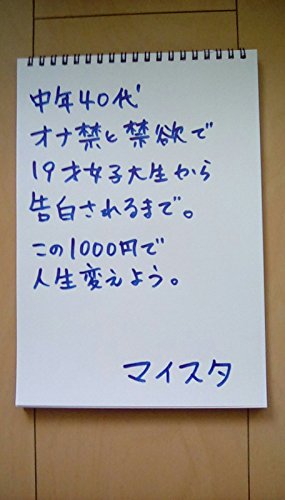 中年40代
オナ禁と禁欲で
19才女子大生から
告白されるまで。
この1000円で
人生変えよう。
マイスタ